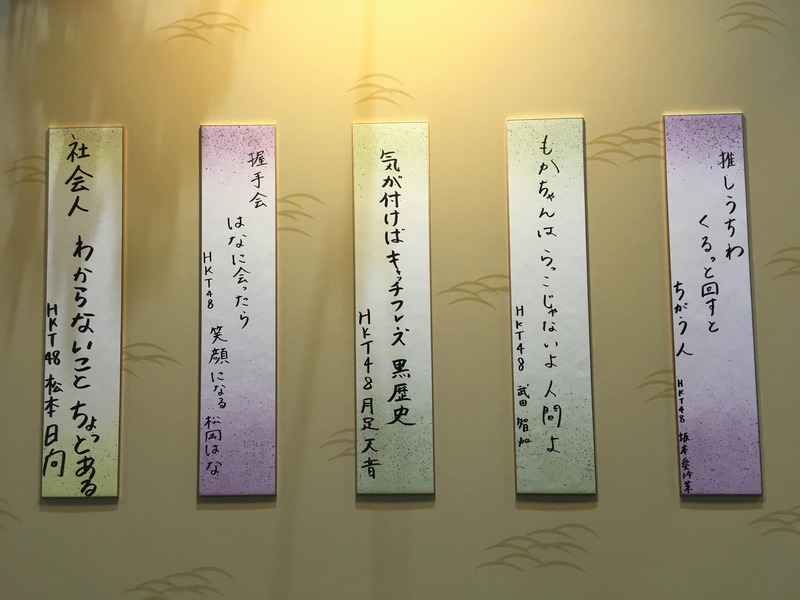 推しうちわ
くるっと回すと
ちがう人
HKT48 坂本愛玲菜
もかちゃんは らっこじゃないよ 人間よ
HKT48 武田 智加
気が付けば キャッチフレーズ 黒歴史
HKT48 月足 天音
握手会
はなに会ったら
笑顔になる
HKT48 松岡はな
社会人 わからないこと ちょっとある
HKT48 松本 日向